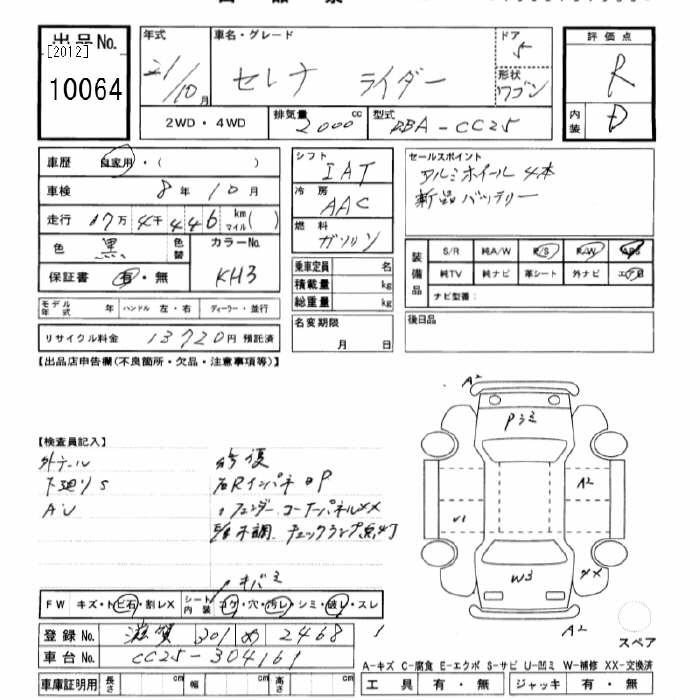 出品No.
[2012]
10064
年式
21/10月
車名・グレード
セレナ ライダー
ドア
5
形状
ワゴン
評価点
R
内装
D
2WD・4WD
排気量
2000cc
型式
DBA-CC25
車歴 自家用・( )
車検 8年10月
走行 17万4千446 km マイル( )
色 黒 色替 カラーNo.
KH3
保証書 有・無
モデル年式 年 ハンドル 左・右 ディーラー・並行
リサイクル料金 13720円 預託済
シフト
IAT
冷房
AAC
燃料
ガソリン
乗車定員 名
積載量 kg
総重量 kg
名変期限
月 日
セールスポイント
アルミホイール 4本
新品バッテリー
装備品
S/R 純A/W P/S P/W ABS
純TV 純ナビ 革シート 外ナビ エアB
ナビ型番:
後日品
【出品店申告欄(不良箇所・欠品・注意事項等)】
【検査員記入】
外テール
下廻りS
AU
修復
右Rインパネ
フェンダー コーナーパネルXX
不調 チェックランプ点灯
キバミ
A2
Pラミ
A2
U1
W3
4X
A2
スペア
FW キズ・トビ石・割レX シート内装 コゲ・穴・汚レ・シミ・破レ・スレ
登録No. 滋賀 301 め 2468
車台No. CC25-304161
車庫証明用 長さ cm 幅 cm 高さ cm
A-キズ C-腐食 E-エクボ S-サビ U-凹ミ W-補修 XX-交換済
工具 有・無 ジャッキ 有・無